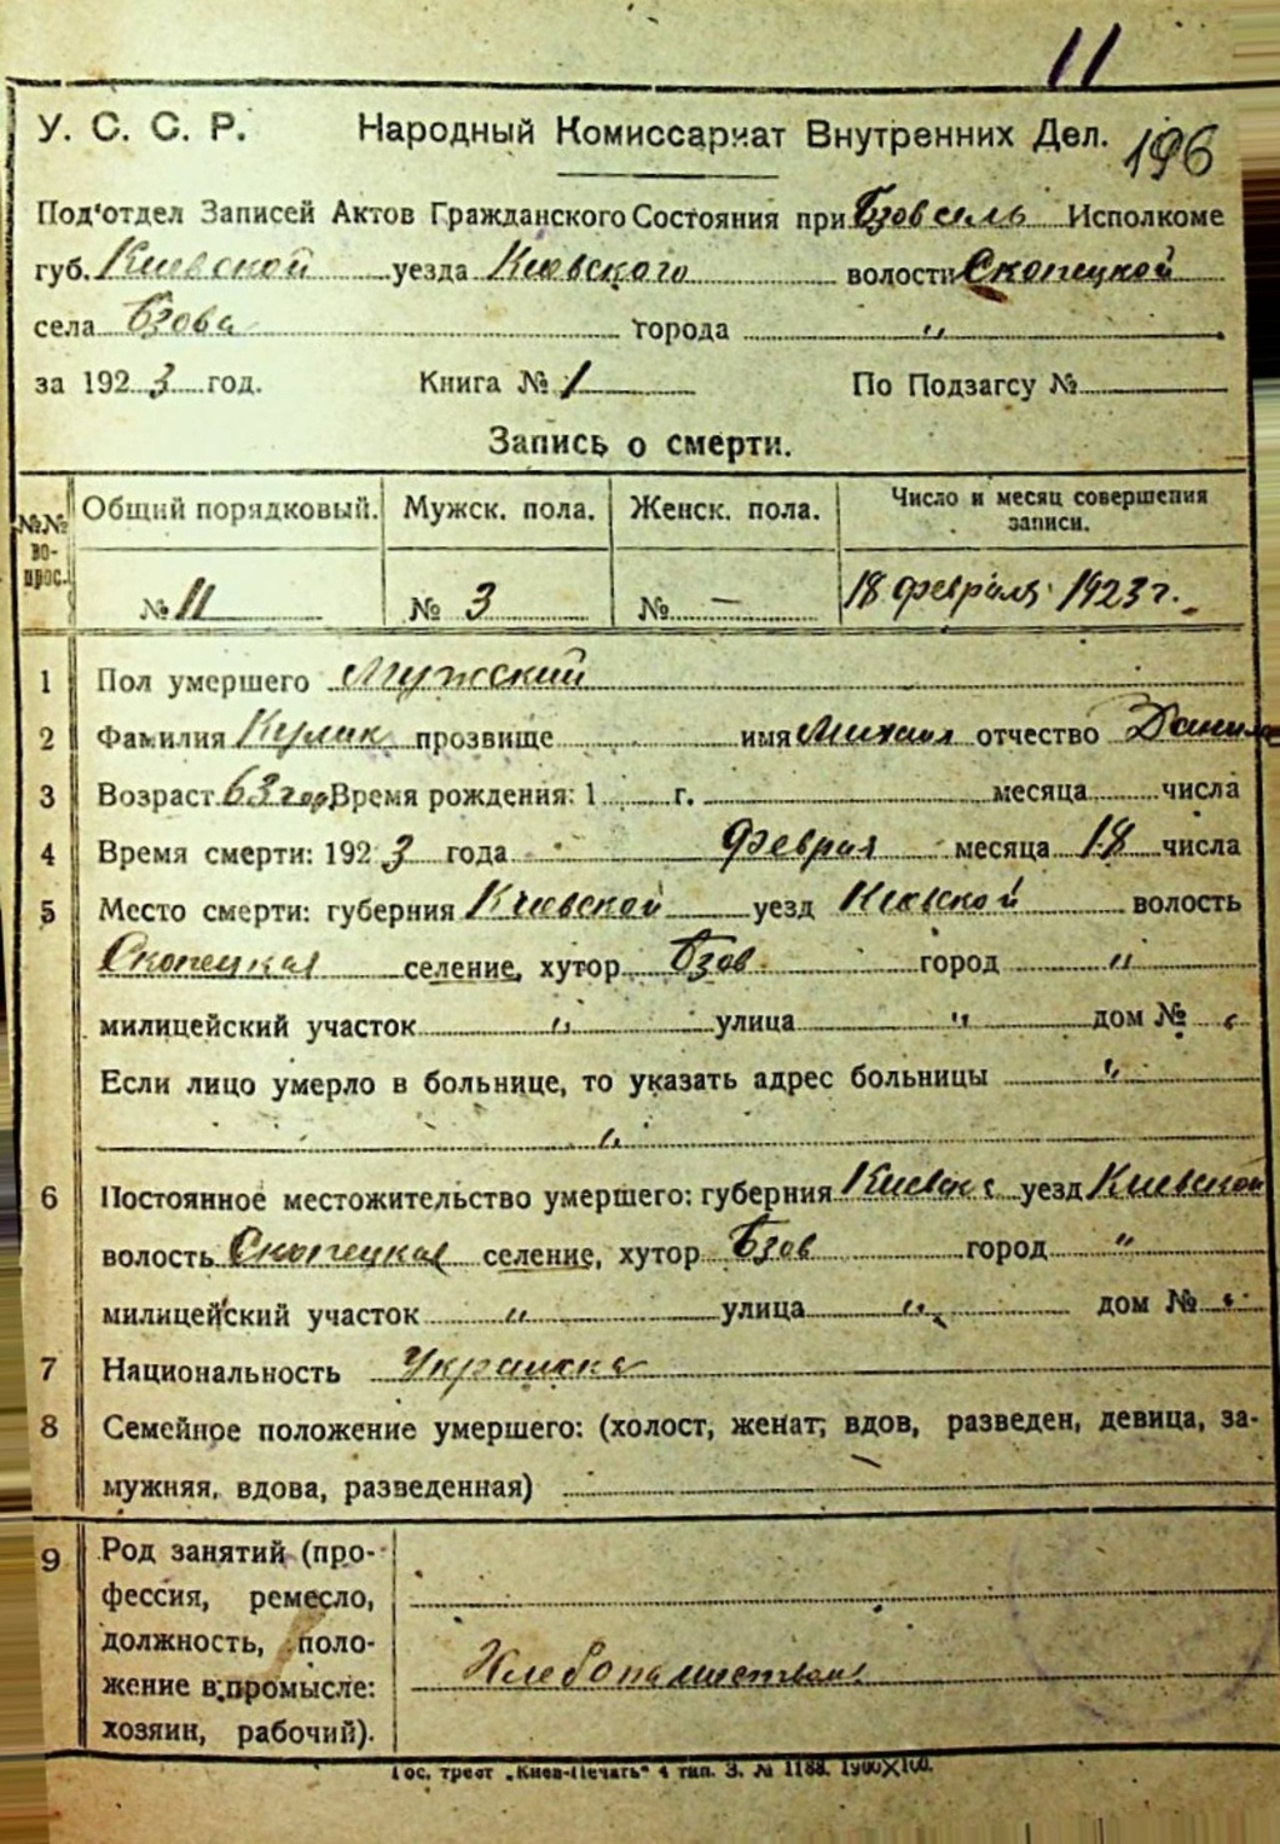 11
У. С. С. Р. Народный Комиссариат Внутренних Дел. 196
Под'отдел Записей Актов Гражданского Состояния при Бзовсель Исполкоме
губ. Киевской уезда Киевского волости Скопецкой
села Бзова города "
за 1923 год. Книга № 1 По Подзагсу №
Запись о смерти.
№№ вопрос. Общий порядковый. Мужск. пола. Женск. пола. Число и месяц совершения записи.
№ 11 № 3 № — 18 февраля 1923 г.
1 Пол умершего Мужский
2 Фамилия Кулик прозвище имя Михаил отчество Данилов
3 Возраст 63 год Время рождения: 1 г. месяца числа
4 Время смерти: 1923 года Феврал месяца 18 числа
5 Место смерти: губерния Киевской уезд Киевской волость
Скопецкая селение, хутор Бзов город "
милицейский участок " улица " дом № "
Если лицо умерло в больнице, то указать адрес больницы "
"
6 Постоянное местожительство умершего: губерния уезд Киевской
волость Скопецкая селение, хутор Бзов город "
милицейский участок " улица " дом № "
7 Национальность
8 Семейное положение умершего: (холост, женат, вдов, разведен, девица, за-
мужняя, вдова, разведенная)
9 Род занятий (про-
фессия, ремесло,
должность, поло-
жение в промысле:
хозяин, рабочий).
Гос. трест „Киев-Печать" 4 тип. З. № 1188. 1900×100.